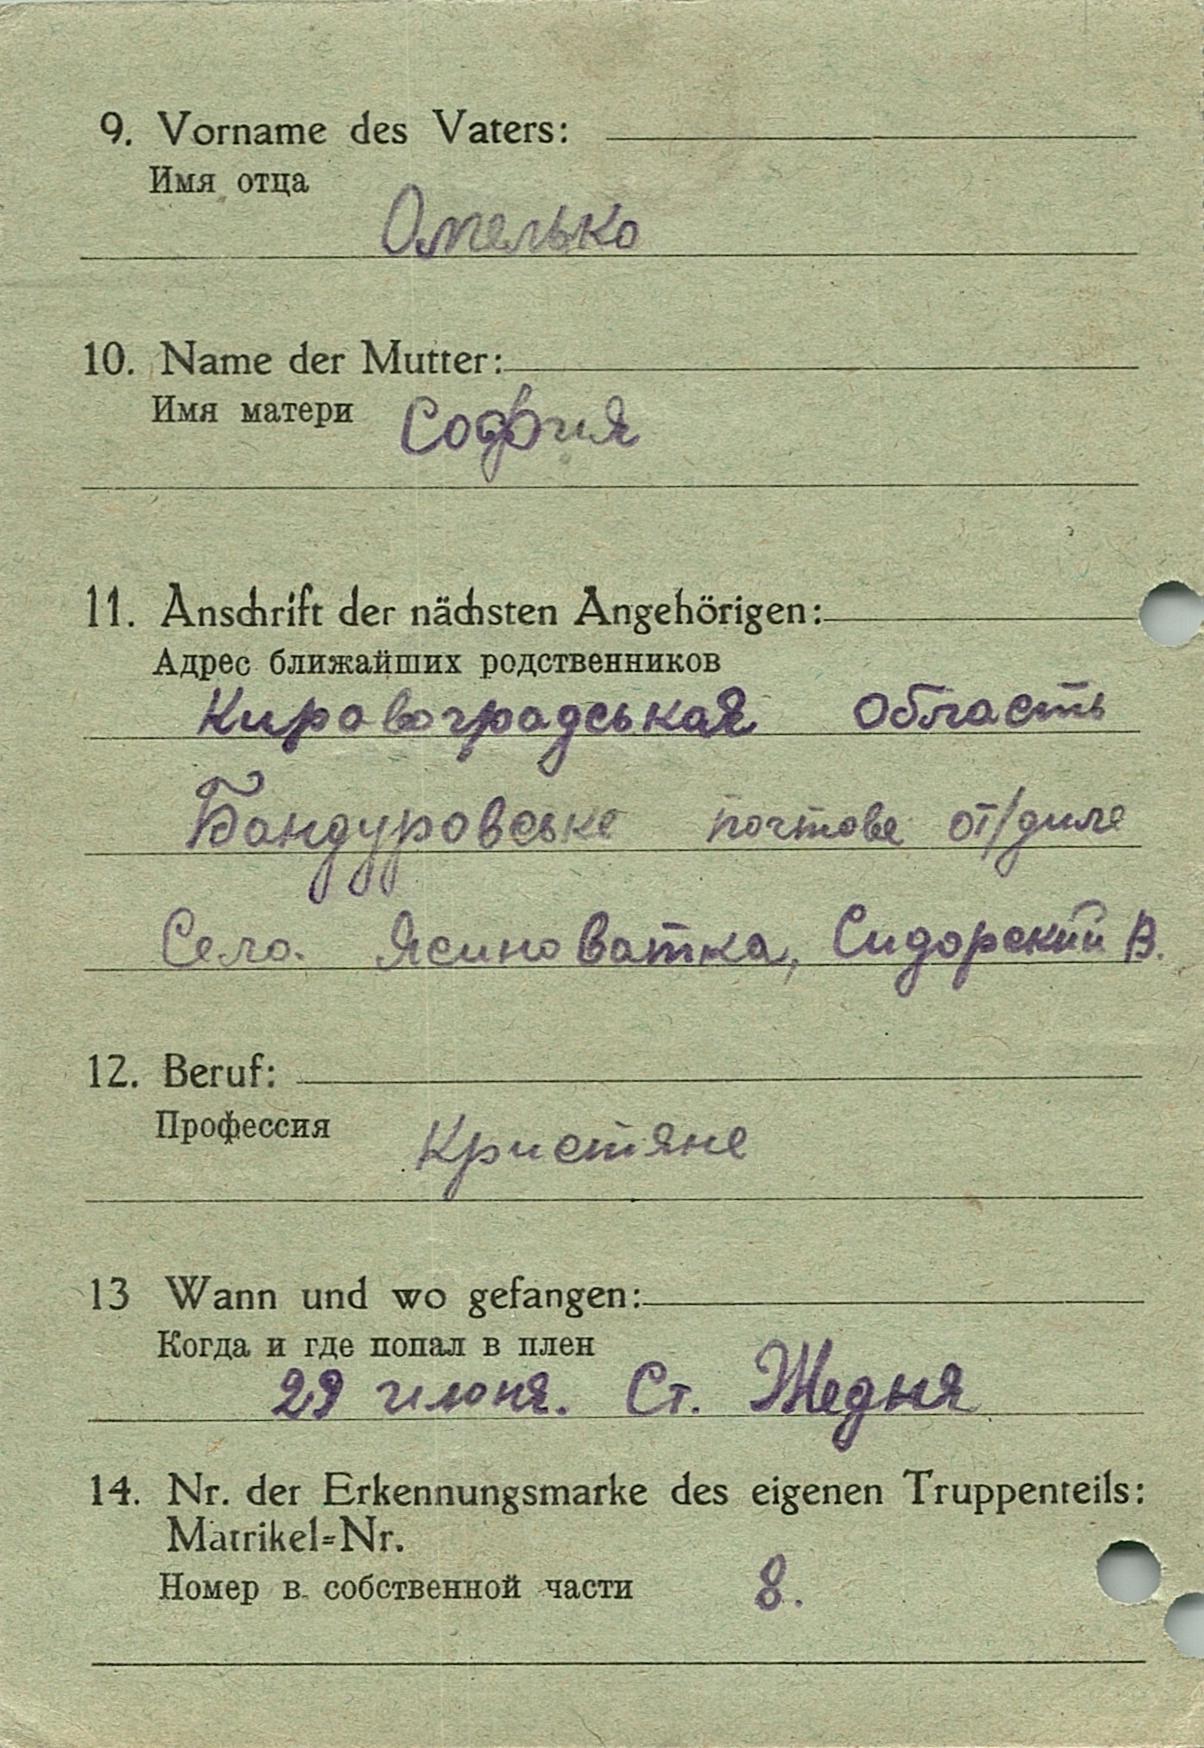 9. Vorname des Vaters:
Имя отца
Омелько
10. Name der Mutter:
Имя матери
София
11. Anschrift der nächsten Angehörigen:
Адрес ближайших родственников
Кировоградськая область
Бандуровське почтове от/диле
Село. Ясиноватка, Сидорский В.
12. Beruf:
Профессия
Кристяне
13 Wann und wo gefangen:
Когда и где попал в плен
29 июня. Ст. Жедня
14. Nr. der Erkennungsmarke des eigenen Truppenteils:
Matrikel=Nr.
Номер в собственной части
8.